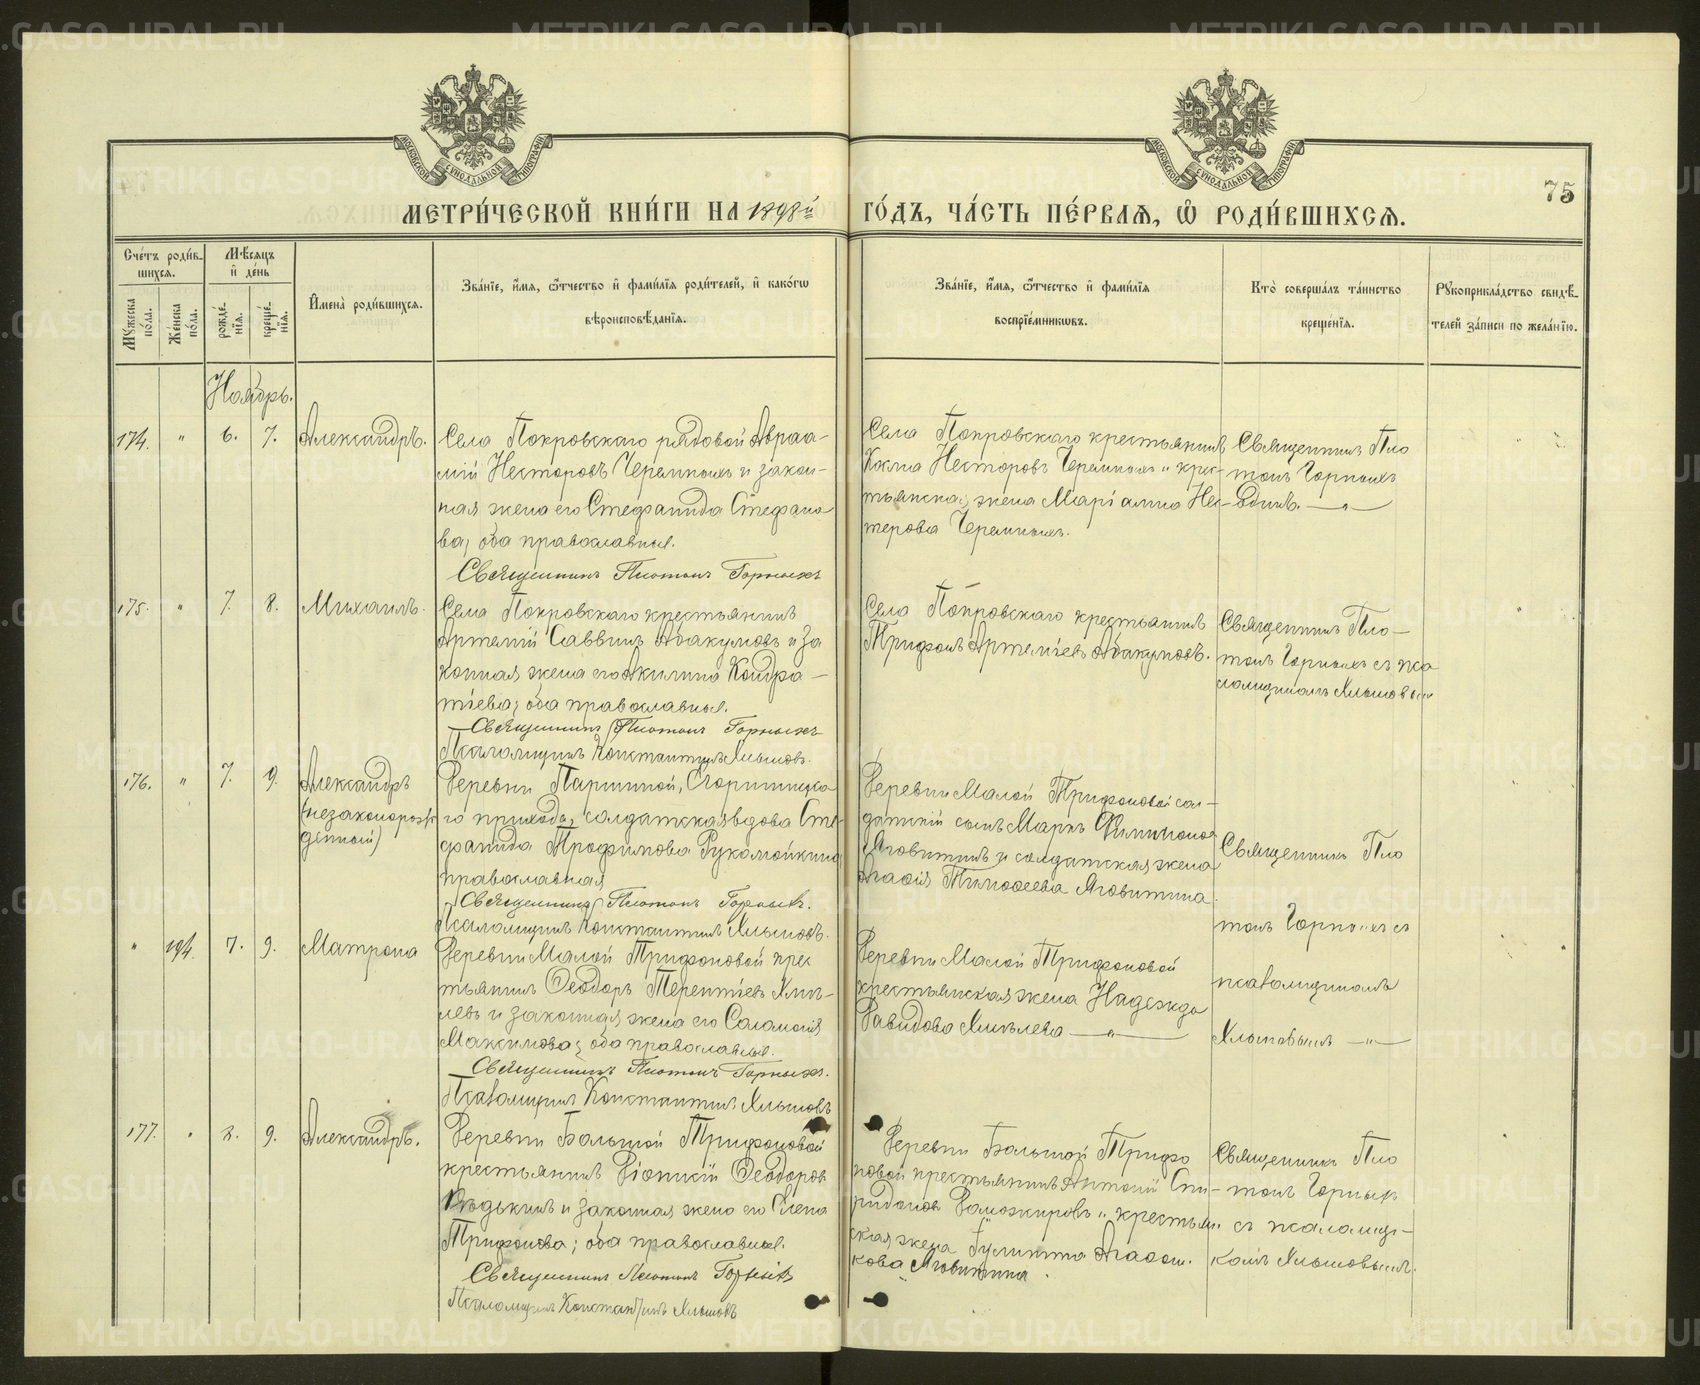 METRIKI.GASO-URAL.RU
МОСКОВСКОЙ СУНОДАЛЬНОЙ ТИПОГРАФІИ
МОСКОВСКОЙ СУНОДАЛЬНОЙ ТИПОГРАФІИ
75
МЕТРИ́ЧЕСКОЙ КНИ́ГИ НА 1898й ГО́ДЪ, ЧА́СТЬ ПЕ́РВАѦ, Ѡ҆ РОДИ́ВШИХСѦ.
Сче́тъ роди́в-
шихсѧ.
Мꙋ́жеска по́ла.
Же́нска по́ла.
Мѣ́сѧцъ
и҆ де́нь
рожде́-
нїѧ.
креще́-
нїѧ.
И҆мена̀ роди́вшихсѧ.
Зва́нїе, и҆́мѧ, ѻ҆́тчество и҆ фами́лїѧ роди́телей, и҆ како́гѡ
вѣроисповѣ́данїѧ.
Зва́нїе, и҆́мѧ, ѻ҆́тчество и҆ фами́лїѧ
воспрїе́мникѡвъ.
Кто̀ соверша́лъ та́инство
креще́нїѧ.
Рꙋкоприкла́дство свидѣ́-
телей за́писи по жела́нїю.
Ноябрь.
174. " 6. 7. Александръ.
Села Покровскаго рядовой Авраа-
мій Несторовъ Черемныхъ и закон-
ная жена его Стефанида Стефано-
ва, оба православные.
Священникъ Платонъ Горныхъ
Села Покровскаго крестьянинъ
Козма Несторовъ Черемныхъ и крес-
тьянская жена Маріамна Нес-
терова Черемныхъ.
Священникъ Пла
тонъ Горныхъ
Единъ. —"—
175. " 7. 8. Михаилъ.
Села Покровскаго крестьянинъ
Артемій Саввинъ Абакумовъ и за
конная жена его Акилина Кондра-
тіева; оба православные.
Священникъ Платонъ Горныхъ
Псаломщикъ Константинъ Хлыновъ.
Села Покровскаго крестьянинъ
Трифонъ Артеміевъ Абакумовъ.
Священникъ Пла-
тонъ Горныхъ съ пса
ломщикомъ Хлыновымъ
176. " 7. 9. Александръ
(незаконорож
денный)
Деревни Паршиной, Егоршинска
го прихода, солдатская вдова Сте-
фанида Трофимова Рукомойкина
православная
Священникъ Платонъ Горныхъ.
Псаломщикъ Константинъ Хлыновъ.
Деревни Малой Трифоновой сол-
датскій сынъ Маркъ Филимонов
Яговитинъ и солдатская жена
Агафія Тимофеева Яговитина.
Священникъ Пла
тонъ Горныхъ съ
псаломщикомъ
Хлыновымъ —"—
" 194. 7. 9. Матрона
Деревни Малой Трифоновой крес
тьянинъ Ѳеодоръ Терентіевъ
и законная жена его Саломонія
Максимова; оба православные.
Священникъ Платонъ Горныхъ.
Псаломщикъ Константинъ Хлыновъ
Деревни Малой Трифоновой
крестьянская жена Надежда
Давидова —"—
177. " 8. 9. Александръ.
Деревни Большой Трифоновой
крестьянинъ Діонисій Ѳеодоров
и законная жена его Елена
Трифонова; оба православные.
Священникъ Платонъ Горныхъ
Псаломщикъ Константинъ Хлыновъ
Деревни Большой Трифо
новой крестьянинъ Антоній Спи-
ридонов и крестьян
ская жена
кова Яговитина.
Священникъ Пла
тонъ Горныхъ
съ псаломщи-
комъ Хлыновымъ.